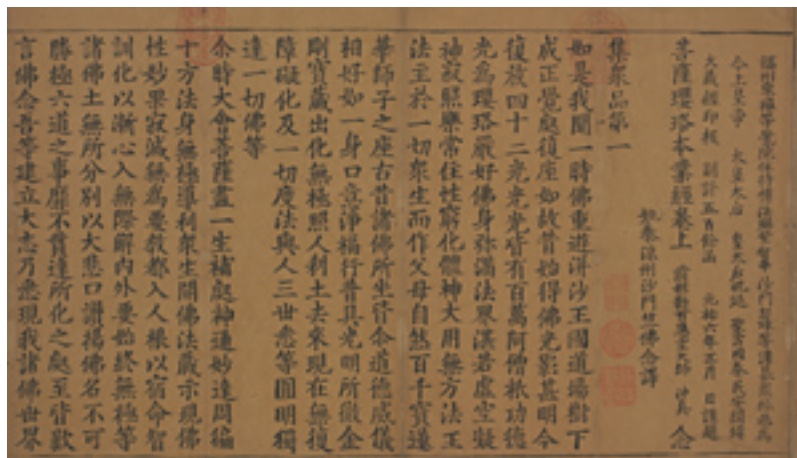 福州東禪等覺院住持傳法賜紫智華 沙門契璋等謹募眾緣恭為
今上皇帝 太皇太后 皇太后祝延 聖壽國泰民安開鏤
大藏經印板 副計五百餘函 元祐六年正月 日謹題
菩薩瓔珞本業經卷上 前都勸首慧空大師 沖真 念
姚秦涼州沙門竺佛念譯
集眾品第一
如是我聞一時佛重遊洴沙王國道場樹下
成正覺處復座如故昔始得佛光影甚明今
復放四十二光光光皆有百萬阿僧祇功德
光為瓔珞嚴好佛身弥滿法界漠若虛空凝
神寂照樂常住性窮化體神大用無方法王
法主於一切眾生而作父母自然百千寶蓮
華師子之座古昔諸佛所坐皆令道德威儀
相好如一身口意淨福行普具光明所徹金
剛寶藏出化無極照人利土去來現在無復
障礙化及一切度法與人三世悉等圓明獨
達一切佛等
尒時大會菩薩盡一生補處神通妙達周徧
十方法身無極導利眾生開佛法藏示現佛
性妙果寂滅無為要教都入人根以宿命智
訓化以漸心入無際解內外要始終無極等
諸佛土無所分別以大悲口讚揚佛名不可
勝極六道之事靡不貫達所化之處至皆歡
言佛念吾等建立大志乃悉現我諸佛世界